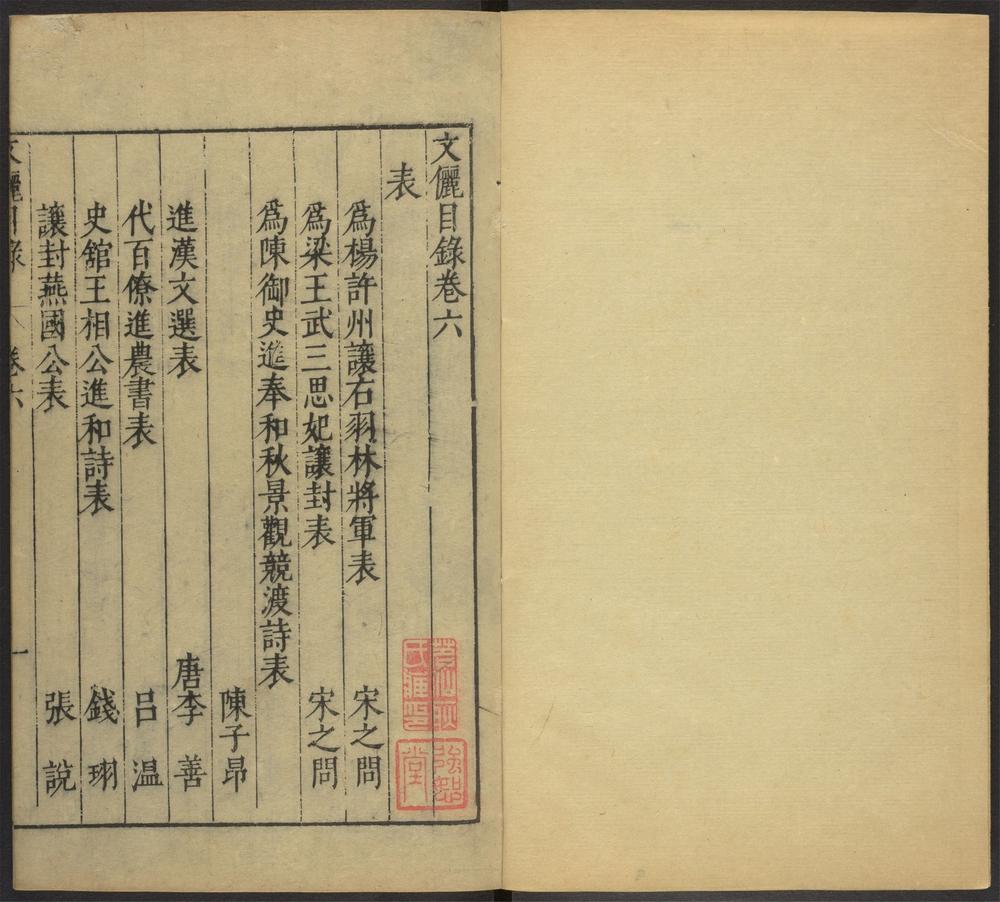 文儷目錄卷六
表
為楊許州讓右羽林將軍表 宋之問
為梁王武三思妃讓封表 宋之問
為陳御史進奉和秋景觀競渡詩表
陳子昂
進漢文選表 唐李善
代百僚進農書表 呂温
史館王相公進和詩表 錢珝
讓封燕國公表 張說
文儷目錄 卷六 一